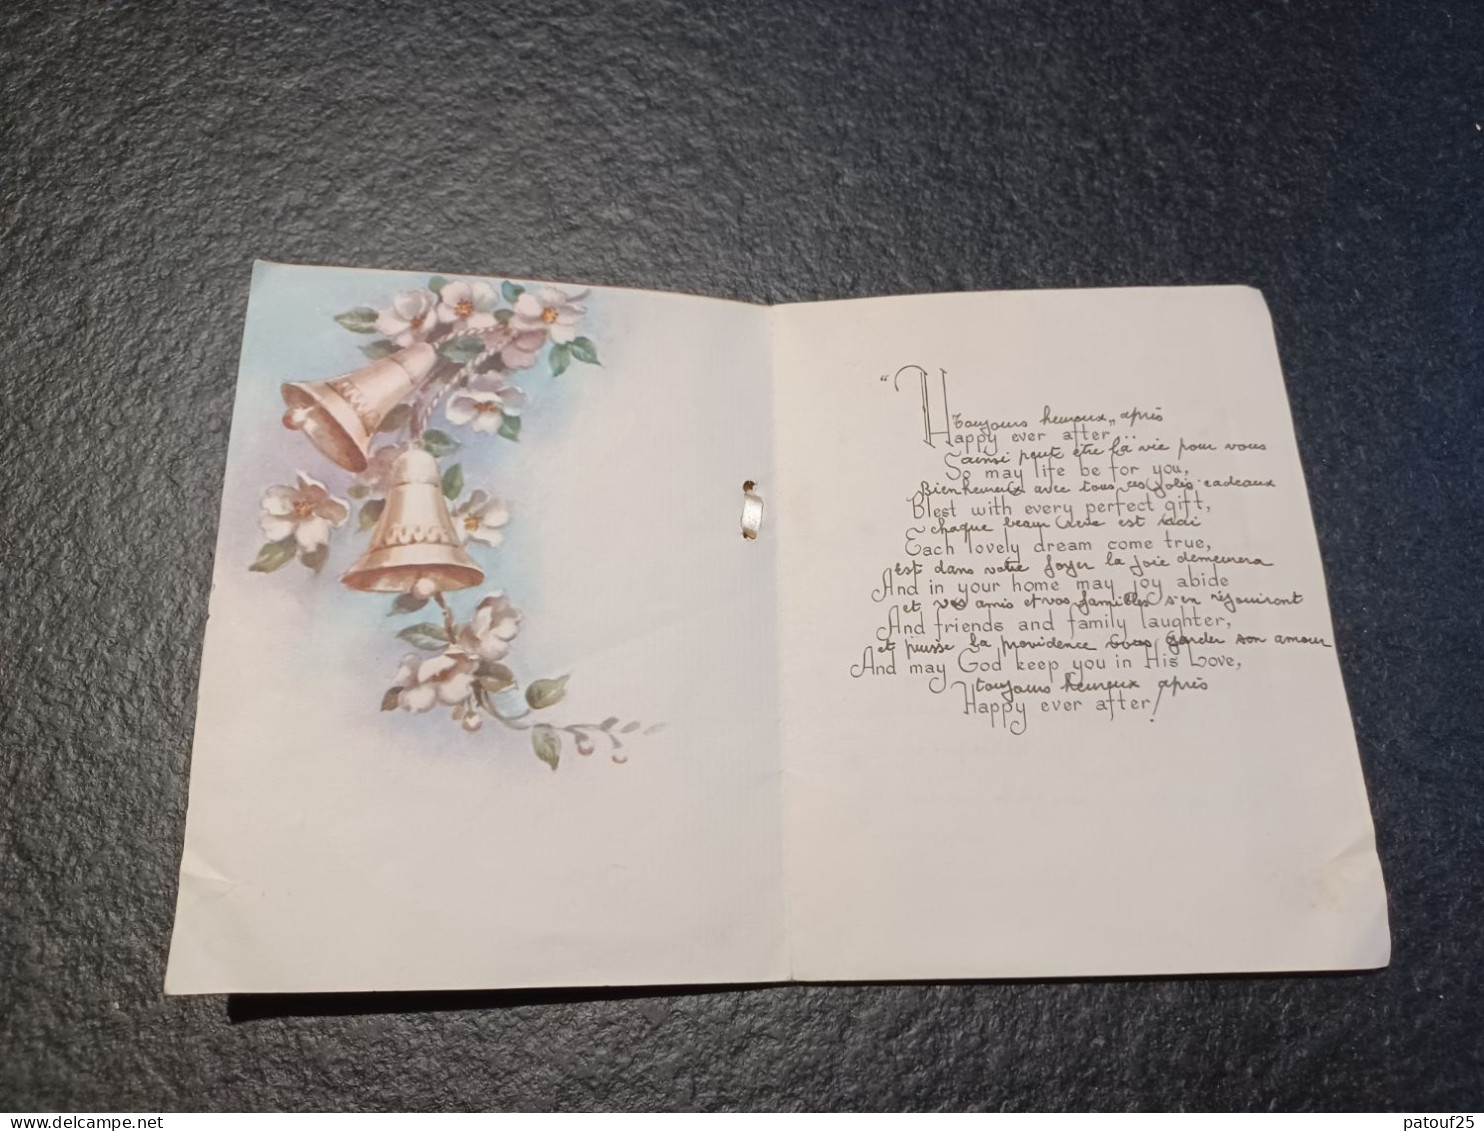 " toujours heureux,, après
Happy ever after
ainsi peut être la vie pour vous
So may life be for you,
Bien heureux avec tous ces jolis cadeaux
Blest with every perfect gift,
chaque beau rêve est
Each lovely dream come true,
est dans votre foyer la joie demeurera
And in your home may joy abide
et vos amis et vos familles s'en réjouiront
And friends and family laughter,
et puisse la providence vous garder son amour
And may God keep you in His Love,
toujours heureux après
Happy ever after!
patouf25